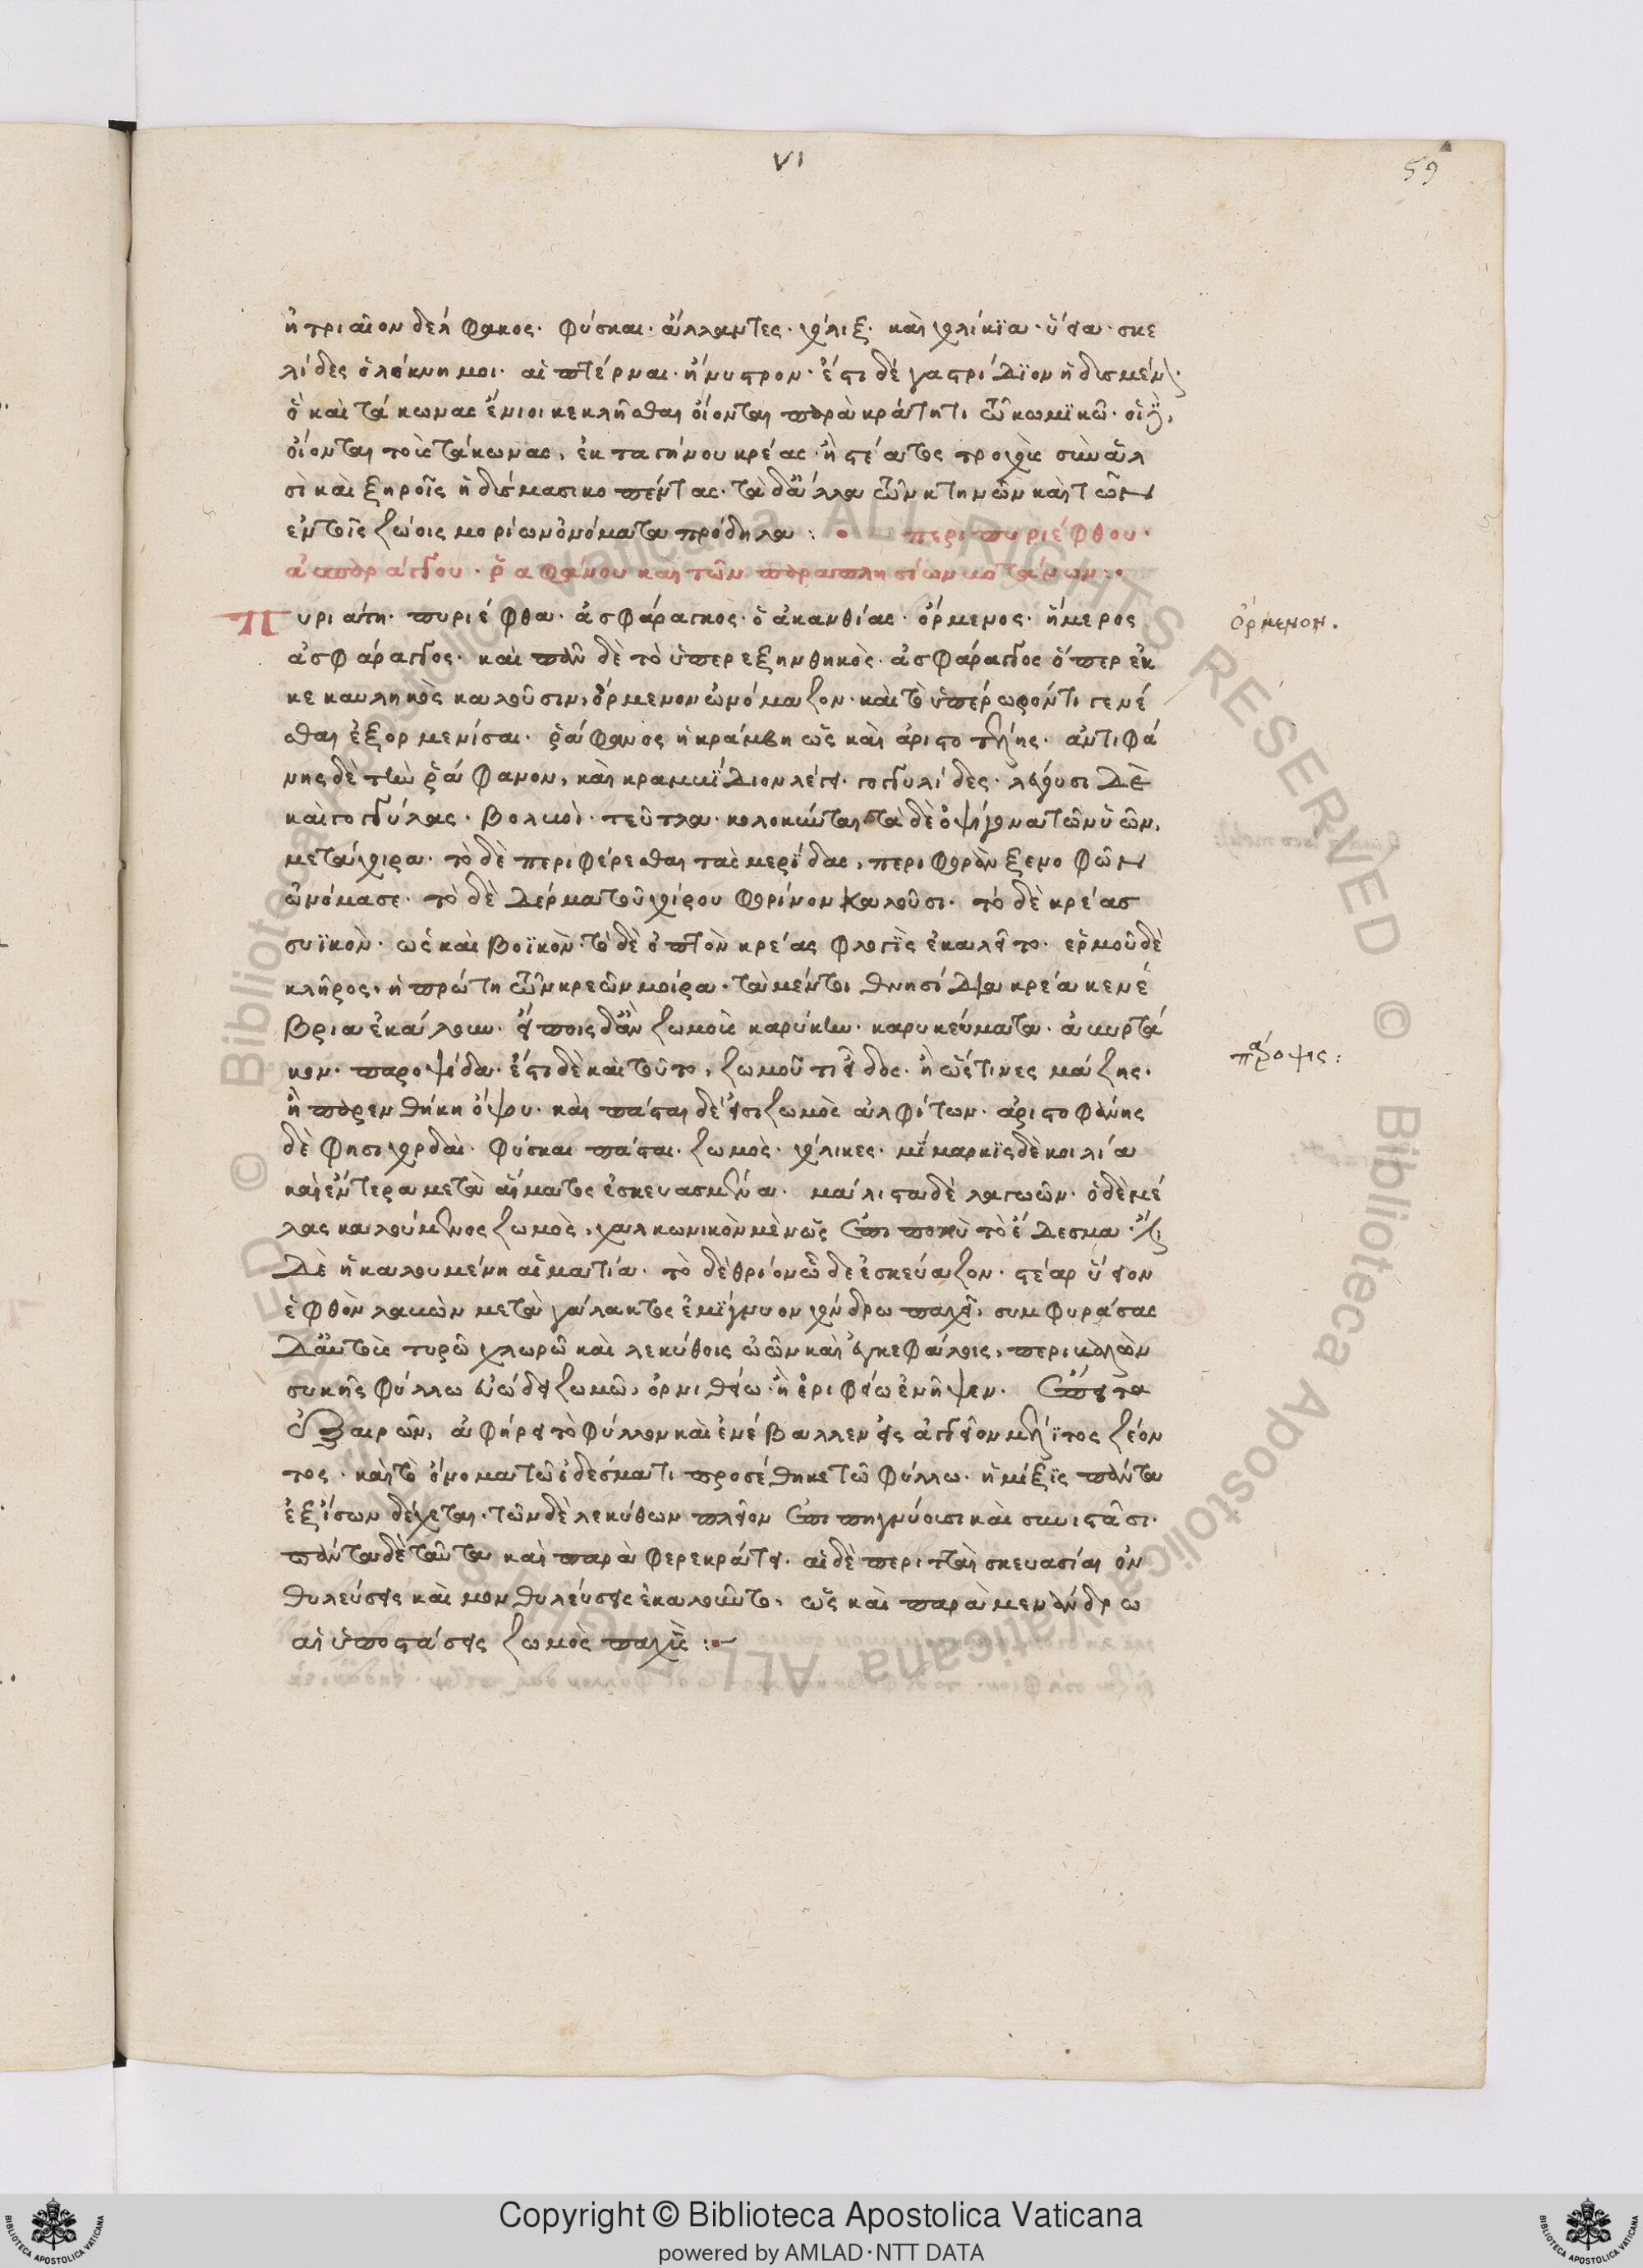 VI
59
ἠτριαῖον δέλφακος· φύσκαι· ἀλλᾶντες· χόλιξ· καὶ χολίκια· ὕεια· σκε
λίδες ὁλόκνημοι· αἱ πτέρναι· ἤνυστρον· ἔστι δὲ γαστρίδιον ἡδυσμένον·
ὃ καὶ τάκωνας ἔνιοι κεκλῆσθαι οἴονται παρὰ κράτητι τῶ κωμϊκῶ· οἱ δὲ,
οἴονται τοὺς τάκωνας, ἐκ ταγήνου κρέας· ἢ στέατος τροχοὺς σὺν ἁλ
σὶ καὶ ξηροῖς ἡδύσμασι κοπέντας· τὰ δ' ἄλλα τῶν κτηνῶν καὶ τῶν
ἐν τοῖς ζώοις μορίων ὀνόματα πρόδηλα : • περὶ πυριέφθου·
ἀσπαράγου· ῥαφάνου καὶ τῶν παραπλησίων βοτάνων:•
Πυριάτη· πυριέφθα· ἀσφάραγος· ὁ ἀκανθίας· ὄρμενος· ἥμερος
ἀσφάραγος· καὶ πᾶν δὲ τὸ ὑπερεξηνθηκὸς· ἀσφάραγος ὅπερ ἐκ
κεκαυληκὸς καλοῦσιν, ὄρμενον ὠνόμαζον· καὶ τὸ ὑπέρωρόν τι γενέ
σθαι ἐξορμενίσαι· ῥάφανος ἡ κράμβη ὡς καὶ ἀριστοτέλης· ἀντιφά
νης δὲ τὴν ῥάφανον, καὶ κραμβίδιον λέγει· γογγυλίδες· λέγουσι δὲ
καὶ γογγύλας· βολβοὶ· τεῦτλα· κολοκύνται τὰ δὲ ὀψάγονα τῶν ὑῶν,
μετάχοιρα· τὸ δὲ περιφέρεσθαι τὰς μερίδας, περιφορὰν ξενοφῶν
ὠνόμασε· τὸ δὲ δέρμα τοῦ χοίρου φορίνον καλοῦσι· τὸ δὲ κρέασ
συϊκὸν· ὡς καὶ βοϊκὸν· τὸ δὲ ὀπτὸν κρέας φλογὶς ἐκαλεῖτο· ἑρμοῦ δὲ
κλῆρος, ἡ πρώτη τῶν κρεῶν μοίρα· τὰ μέντοι θνησίδια κρέα κενέ
βρια ἐκάλουν· εἴποις δ' ἂν ζωμοὺς καρύκην· καρυκεύματα· ἀβυρτά
κην· παροψίδα· ἔστι δὲ καὶ τοῦτο, ζωμοῦ τι εἶδος· ἢ ὥς τινες μάζης·
ἢ παρενθήκη ὄψου· καὶ πάσται δέ εἰσι ζωμὸς ἀλφίτων· ἀριστοφάνης
δὲ φησι χορδαὶ· φύσκαι πάσται· ζωμὸς· χόλικες· μίμαρκϊς δὲ κοιλία
καὶ ἔντερα μετὰ αἵματος ἐσκευασμένα· μάλιστα δὲ λαγωῶν· ὁ δὲ μέ
λας καλούμενος ζωμὸς, λακωνικὸν μὲν ὡς ἐπιπολὺ τὸ ἔδεσμα· ἔστι
δὲ ἡ καλουμένη αἱματία· τὸ δὲ θρίον ὧδε ἐσκεύαζον· στέαρ ὕειον
ἑφθὸν λαβὼν μετὰ γάλακτος ἐμίγνυον χόνδρω παχεῖ, συμφυράσας
δ' αὐτοὺς τυρῶ χλωρῶ καὶ λεκύθοις ὠῶν καὶ ἐγκεφάλοις, περιβαλὼν
συκῆς φύλλω εὐώδει ζωμῶ, ὀρνιθείω· ἢ ἐριφείω ἐνῆψεν· ἔπειτα
ἐξαιρῶν, ἀφήρει τὸ φύλλον καὶ ἐνέβαλλεν εἰς ἀγγεῖον μέλιτος ζέον
τος· καὶ τὸ ὄνομα τῶ ἐδέσματι προσέθηκε τῶ φύλλω· ἡ μίξϊς πάντα
ἐξίσων δέχεται· τῶν δὲ λεκύθων πλεῖον ἐπιπηγνύουσι καὶ συνιστᾶσι·
πάντα δὲ ταῦτα καὶ παρὰ φερεκράτει· αἱ δὲ περιτταὶ σκευασίαι ὀν
θυλεύσεις καὶ μονθυλεύσεις ἐκαλοῦντο, ὡς καὶ παρὰ μενάνδρω
αἱ ὑποστάσεις ζωμὸς παχὺς :•~
ὄρμενον.
πάροψις:
Copyright © Biblioteca Apostolica Vaticana
powered by AMLAD·NTT DATA